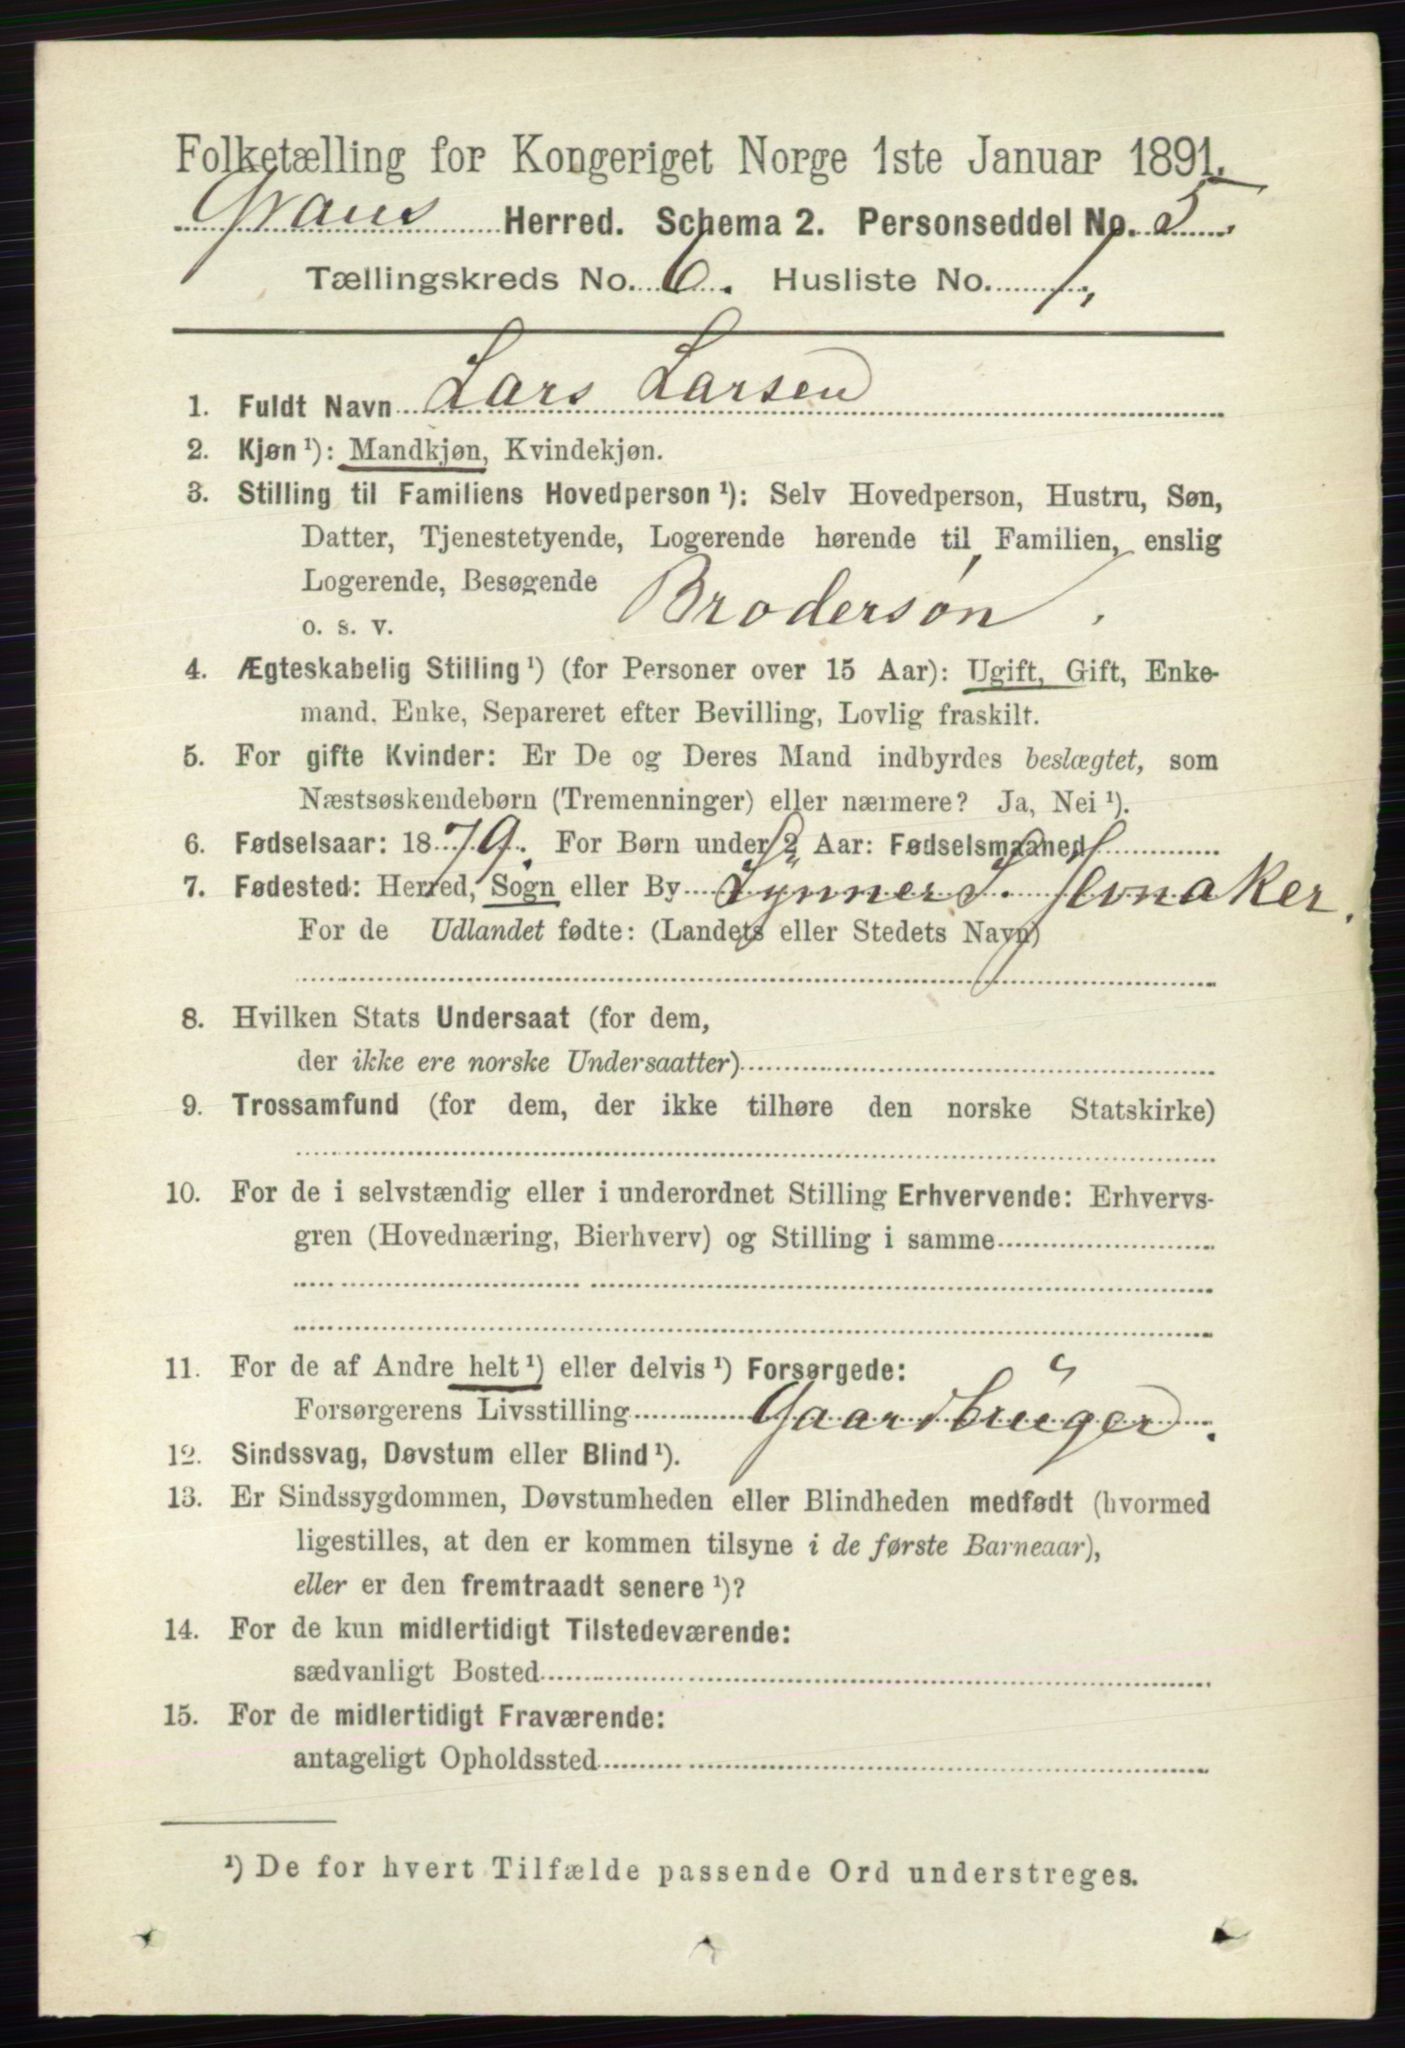 Folketælling for Kongeriget Norge 1ste Januar 1891.
Grans Herred. Schema 2. Personseddel No. 5.
Tællingskreds No. 6. Husliste No. 1.
1. Fuldt Navn Lars Larsen
2. Kjøn ¹): Mandkjøn, Kvindekjøn.
3. Stilling til Familiens Hovedperson ¹): Selv Hovedperson, Hustru, Søn,
Datter, Tjenestetyende, Logerende hørende til Familien, enslig
Logerende, Besøgende
o. s. v. Brodersøn.
4. Ægteskabelig Stilling ¹) (for Personer over 15 Aar): Ugift, Gift, Enke-
mand, Enke, Separeret efter Bevilling, Lovlig fraskilt.
5. For gifte Kvinder: Er De og Deres Mand indbyrdes beslægtet, som
Næstsøskendebørn (Tremenninger) eller nærmere? Ja, Nei ¹).
6. Fødselsaar: 1879. For Børn under 2 Aar: Fødselsmaaned
7. Fødested: Herred, Sogn eller By Lynner S. Jevnaker.
For de Udlandet fødte: (Landets eller Stedets Navn)
8. Hvilken Stats Undersaat (for dem,
der ikke ere norske Undersaatter)
9. Trossamfund (for dem, der ikke tilhøre den norske Statskirke)
10. For de i selvstændig eller i underordnet Stilling Erhvervende: Erhvervs-
gren (Hovednæring, Bierhverv) og Stilling i samme
11. For de af Andre helt ¹) eller delvis ¹) Forsørgede:
Forsørgerens Livsstilling Gaardbruger.
12. Sindssvag, Døvstum eller Blind ¹).
13. Er Sindssygdommen, Døvstumheden eller Blindheden medfødt (hvormed
ligestilles, at den er kommen tilsyne i de første Barneaar),
eller er den fremtraadt senere ¹)?
14. For de kun midlertidigt Tilstedeværende:
sædvanligt Bosted
15. For de midlertidigt Fraværende:
antageligt Opholdssted
¹) De for hvert Tilfælde passende Ord understreges.